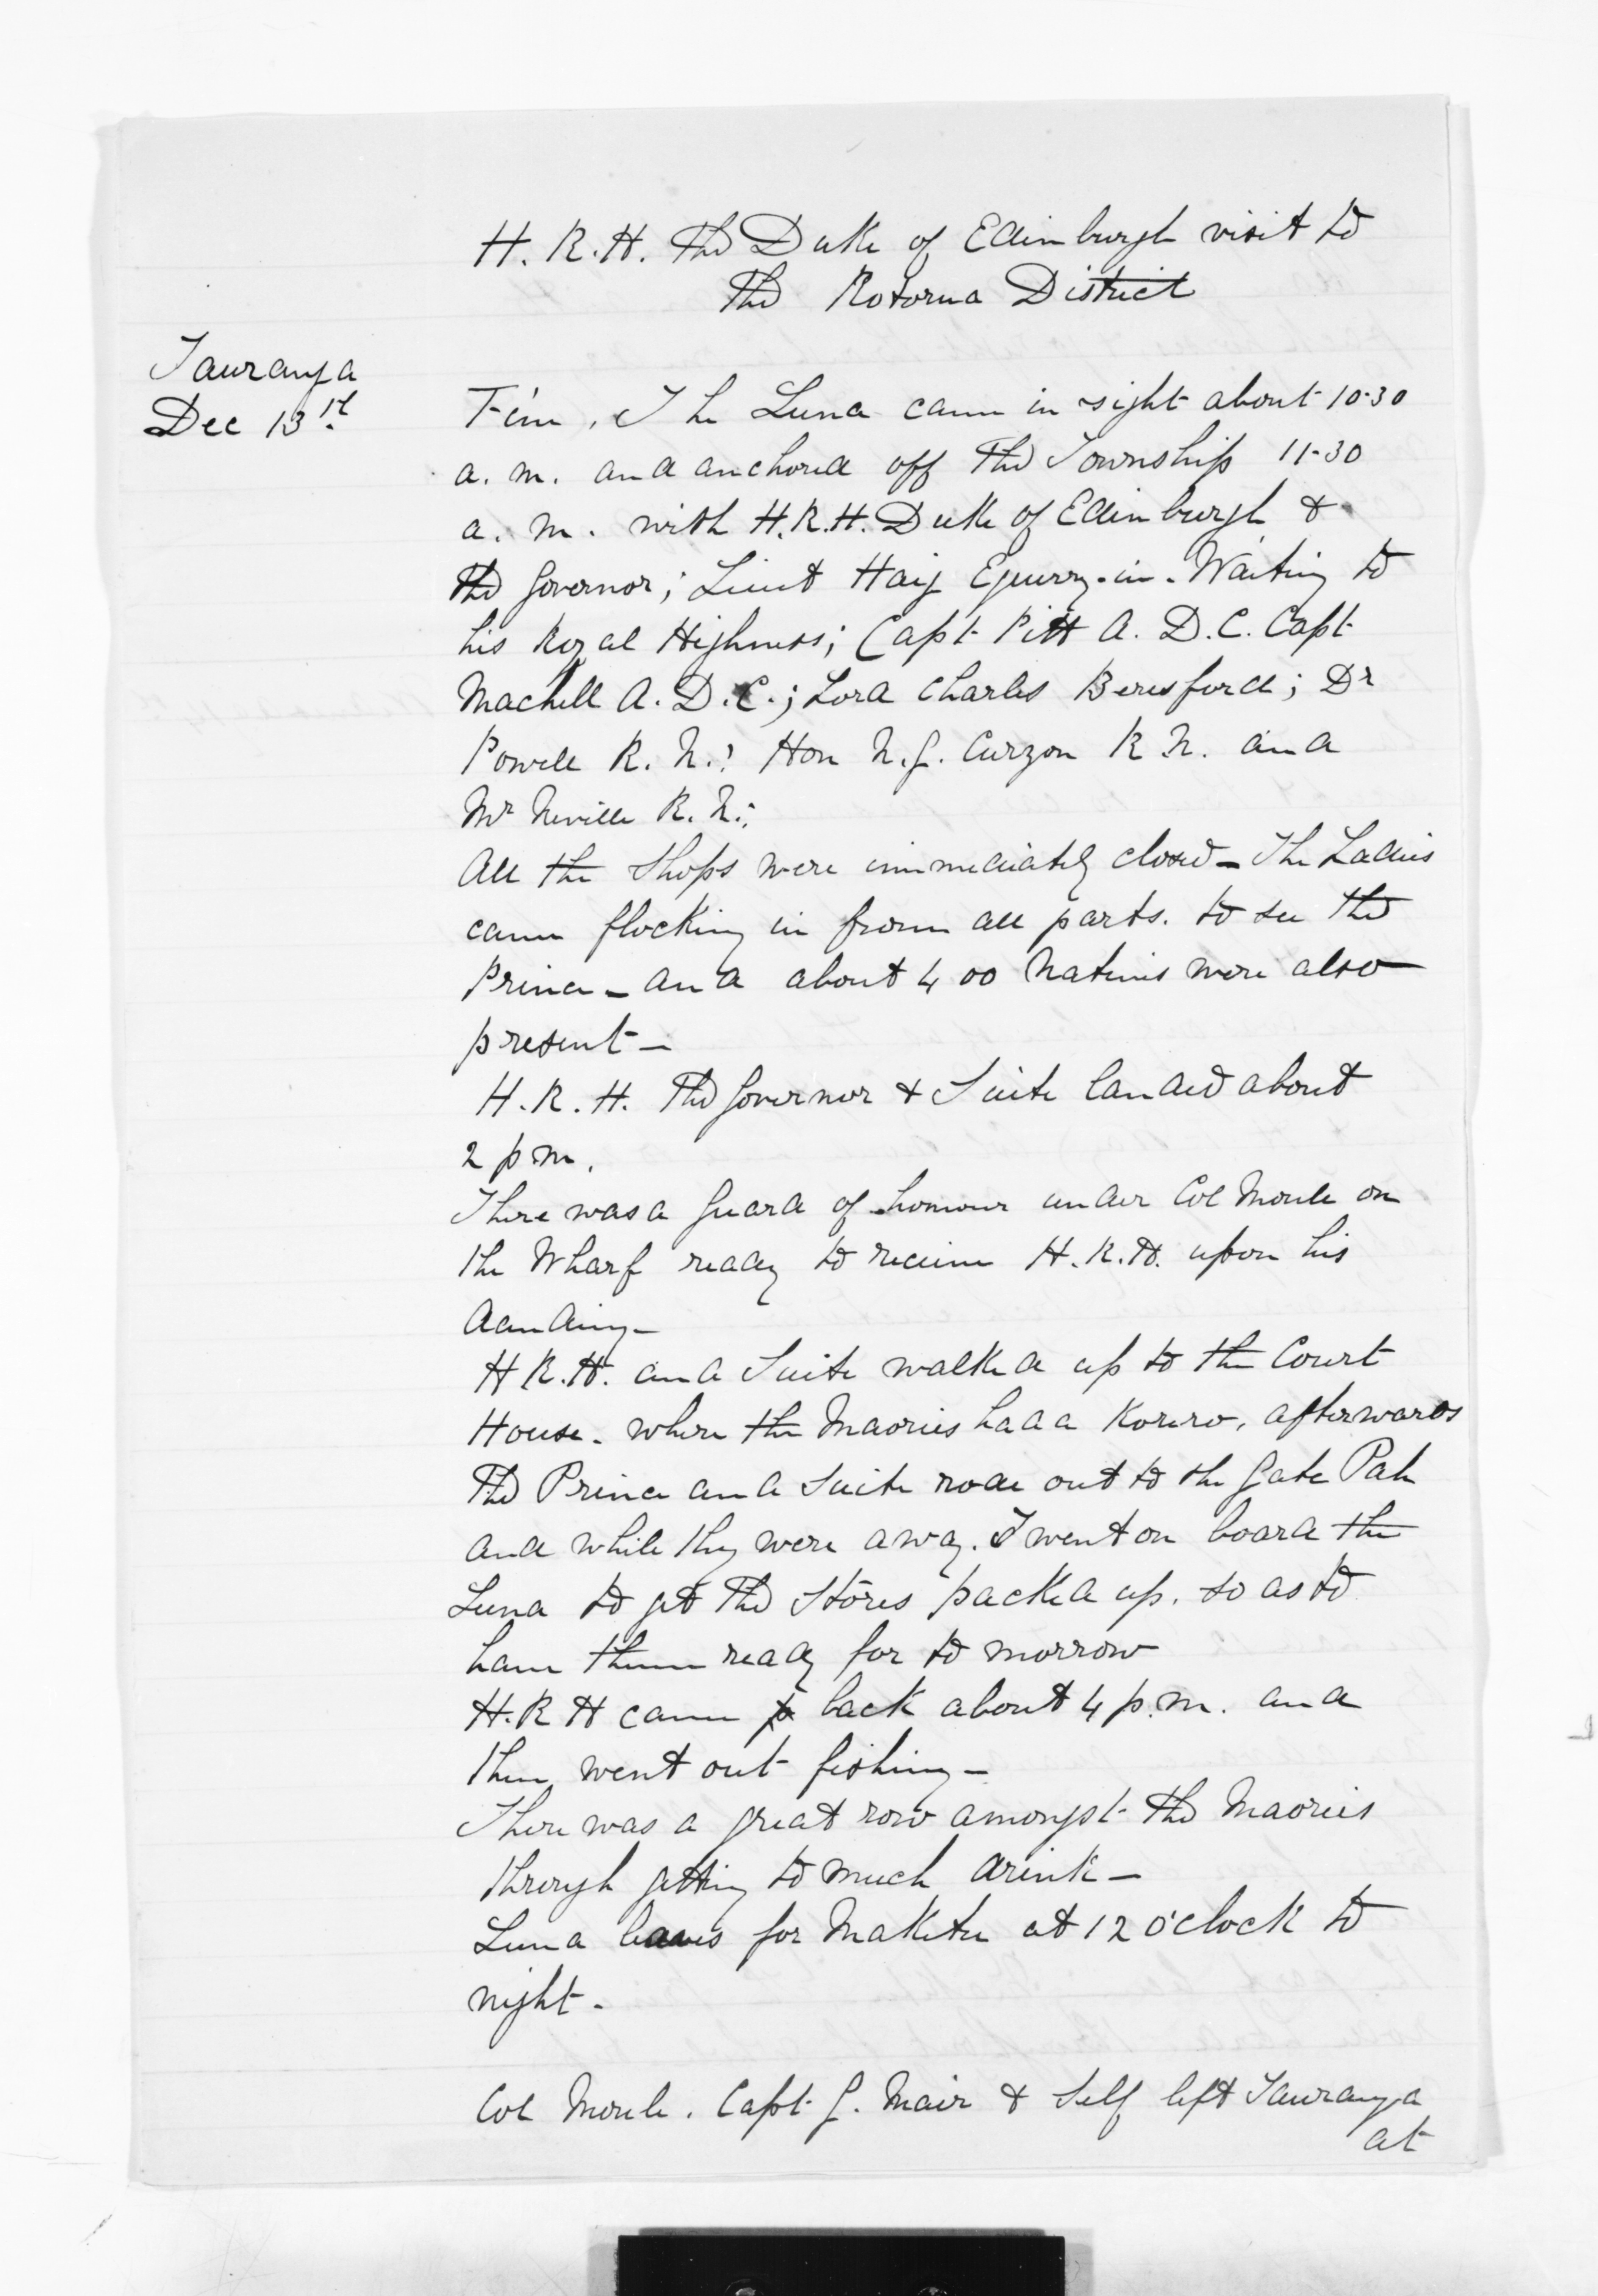 H. R. H. The Duke of Edinburgh visit to
The Rotorua District
Tauranga
Dec 13th
Fine, The Luna came in sight about 10-30
a. m. and anchored off the Township 11-30
a. m. with H. R. H. Duke of Edinburgh &
the Governor; Lieut Haig Equerry-in-Waiting to
his Royal Highness; Capt Pitt A. D. C. Capt
Machell A. D. C.; Lord Charles Beresford; Dr
Powell R. N.; Hon N. G. Curzon R. N. and
Mr Neville R. N.;
All the Shops were immediately closed - The Ladies
came flocking in from all parts. to see the
Prince - and about 400 Natives were also
present -
H. R. H. The Governor & Suite landed about
2 p m.
There was a Guard of honour under Col Moule on
the Wharf ready to receive H. R. H. upon his
landing -
H R. H. and Suite walked up to the Court
House. where the Maories had a Korero, afterwards
The Prince and Suite rode out to the Gate Pah
and while they were away. I went on board the
Luna to get the Stores packed up. so as to
have them ready for to morrow
H. R H came back about 4 p. m. and
then went out fishing -
There was a great row amongst the Maories
through getting to much drink -
Luna leaves for Maketu at 12 o'clock to
night -
Col Moule. Capt G. Mair & Self left Tauranga
at